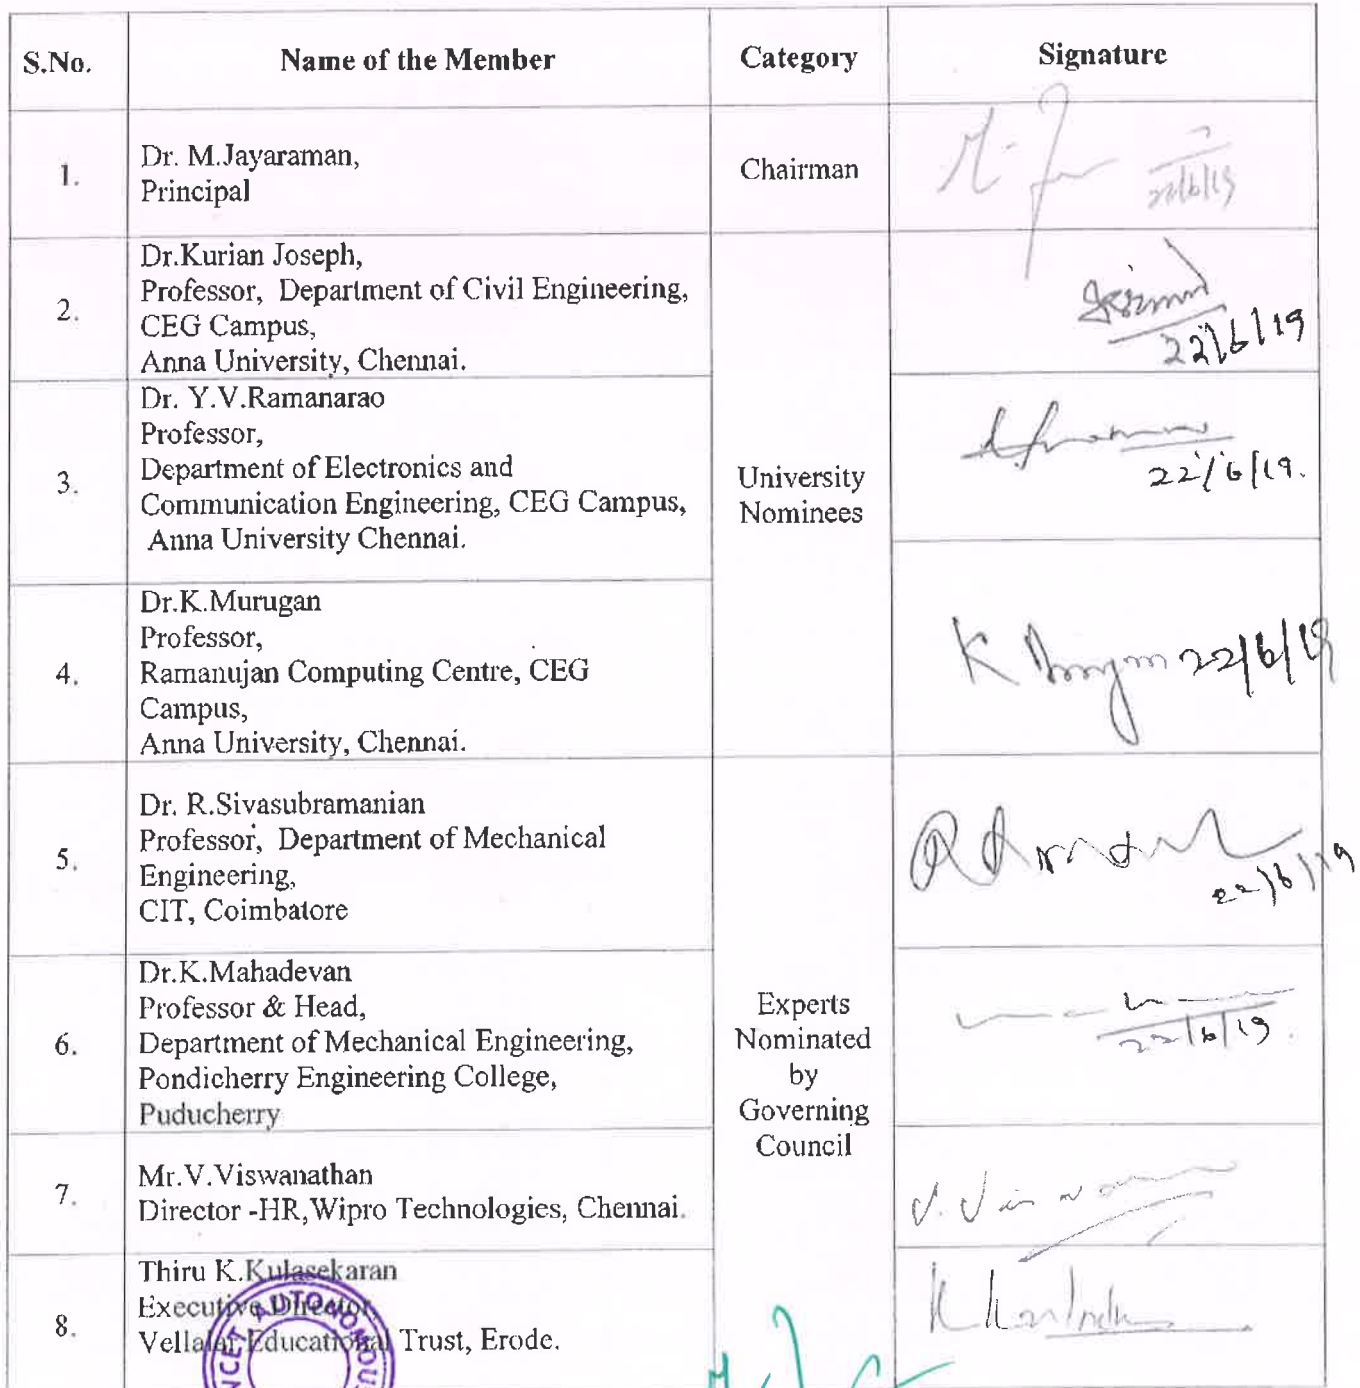 S.No. Name of the Member Category Signature
1. Dr. M.Jayaraman,
Principal
Chairman
22/6/19
2. Dr.Kurian Joseph,
Professor, Department of Civil Engineering,
CEG Campus,
Anna University, Chennai.
22/6/19
3. Dr. Y.V.Ramanarao
Professor,
Department of Electronics and
Communication Engineering, CEG Campus,
Anna University Chennai.
University
Nominees
22/6/19.
4. Dr.K.Murugan
Professor,
Ramanujan Computing Centre, CEG
Campus,
Anna University, Chennai.
K 22/6/19
5. Dr. R.Sivasubramanian
Professor, Department of Mechanical
Engineering,
CIT, Coimbatore
22/6/19
6. Dr.K.Mahadevan
Professor & Head,
Department of Mechanical Engineering,
Pondicherry Engineering College,
Puducherry
Experts
Nominated
by
Governing
Council
22/6/19.
7. Mr.V.Viswanathan
Director -HR,Wipro Technologies, Chennai.
8. Thiru K.Kulasekaran
Executive Director,
Vellalar Educational Trust, Erode.
AUTONOMOUS